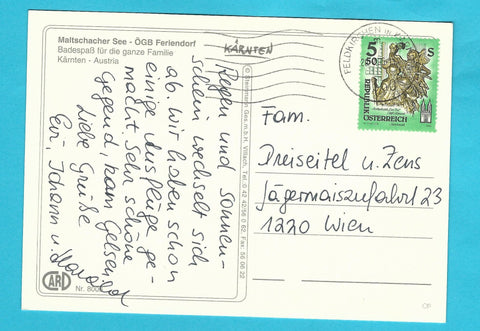 Maltschacher See - ÖGB Feriendorf
Badespaß für die ganze Familie
Kärnten - Austria
KÄRNTEN
Regen und Sonnen-
schein wechselt sich
ab. Wir haben schon
einige Ausflüge ge-
macht. Sehr schöne
Gegend, kaum Gelsen
Liebe Grüße
Evi, Johann u. Harald
CARD
Nr. 800
Ges.m.b.H. Villach, Tel. 0 42 42/56 0 62, Fax: 56 06 22
FELDKIRCHEN IN
5 S
50
REPUBLIK
ÖSTERREICH
Fam.
Dreiseitel u. Zens
Jägermaiszufahrt 23
1220 Wien